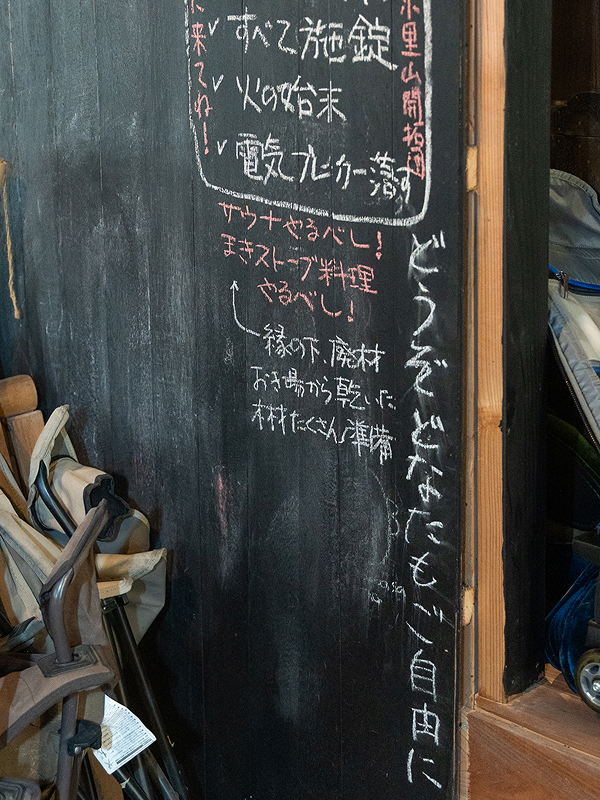 すべて施錠
火の始末
電気ブレーカー落す
来てね!
里山開拓団
サウナやるべし!
まきストーブ料理
やるべし!
縁の下、廃材
おき場から乾いた
木材たくさん準備
どうぞどなたもご自由に